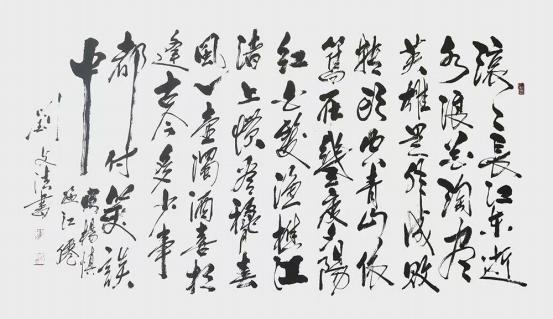 滚〻長江东逝
水浪花淘尽
英雄是非成败
转頭空青山依
舊在幾度夕陽
红白髮渔樵江
渚上惯看秋月春
風一壶濁酒喜相
逢古今多少事
都付笑談
中
楊慎
临江仙
刘文法書